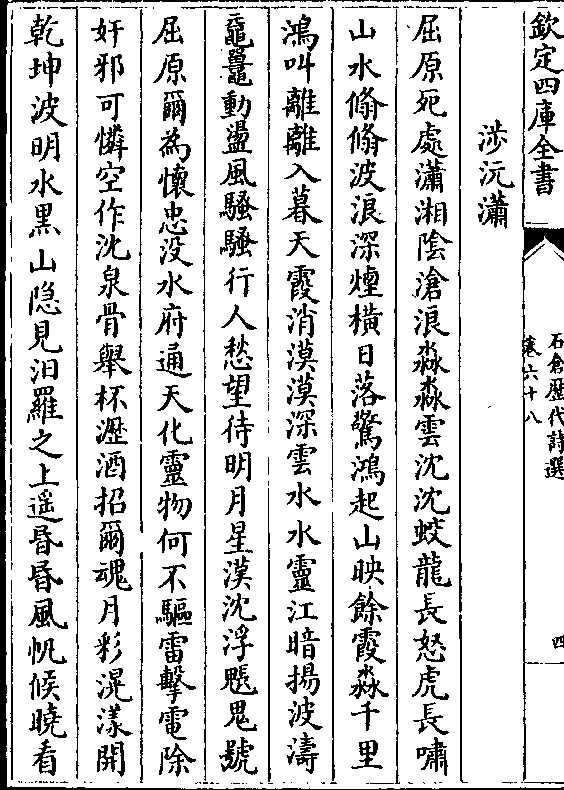 欽定四庫全書
石倉歷代詩選
卷六十八
四
涉沅瀟
屈原死處瀟湘陰滄浪淼淼雲沈沈蛟龍長怒虎長嘯
山水翛翛波浪深煙橫日落驚鴻起山映餘霞淼千里
鴻叫離離入暮天霞消漠漠深雲水水靈江暗揚波濤
黿鼉動盪風騷騷行人愁望待明月星漢沈浮鬼號
屈原爾為懷忠没水府通天化靈物何不驅雷擊電除
奸邪可憐空作沈泉骨舉杯瀝酒招爾魂月彩滉漾開
乾坤波明水黑山隐見汨羅之上遥昏昏風帆候曉看